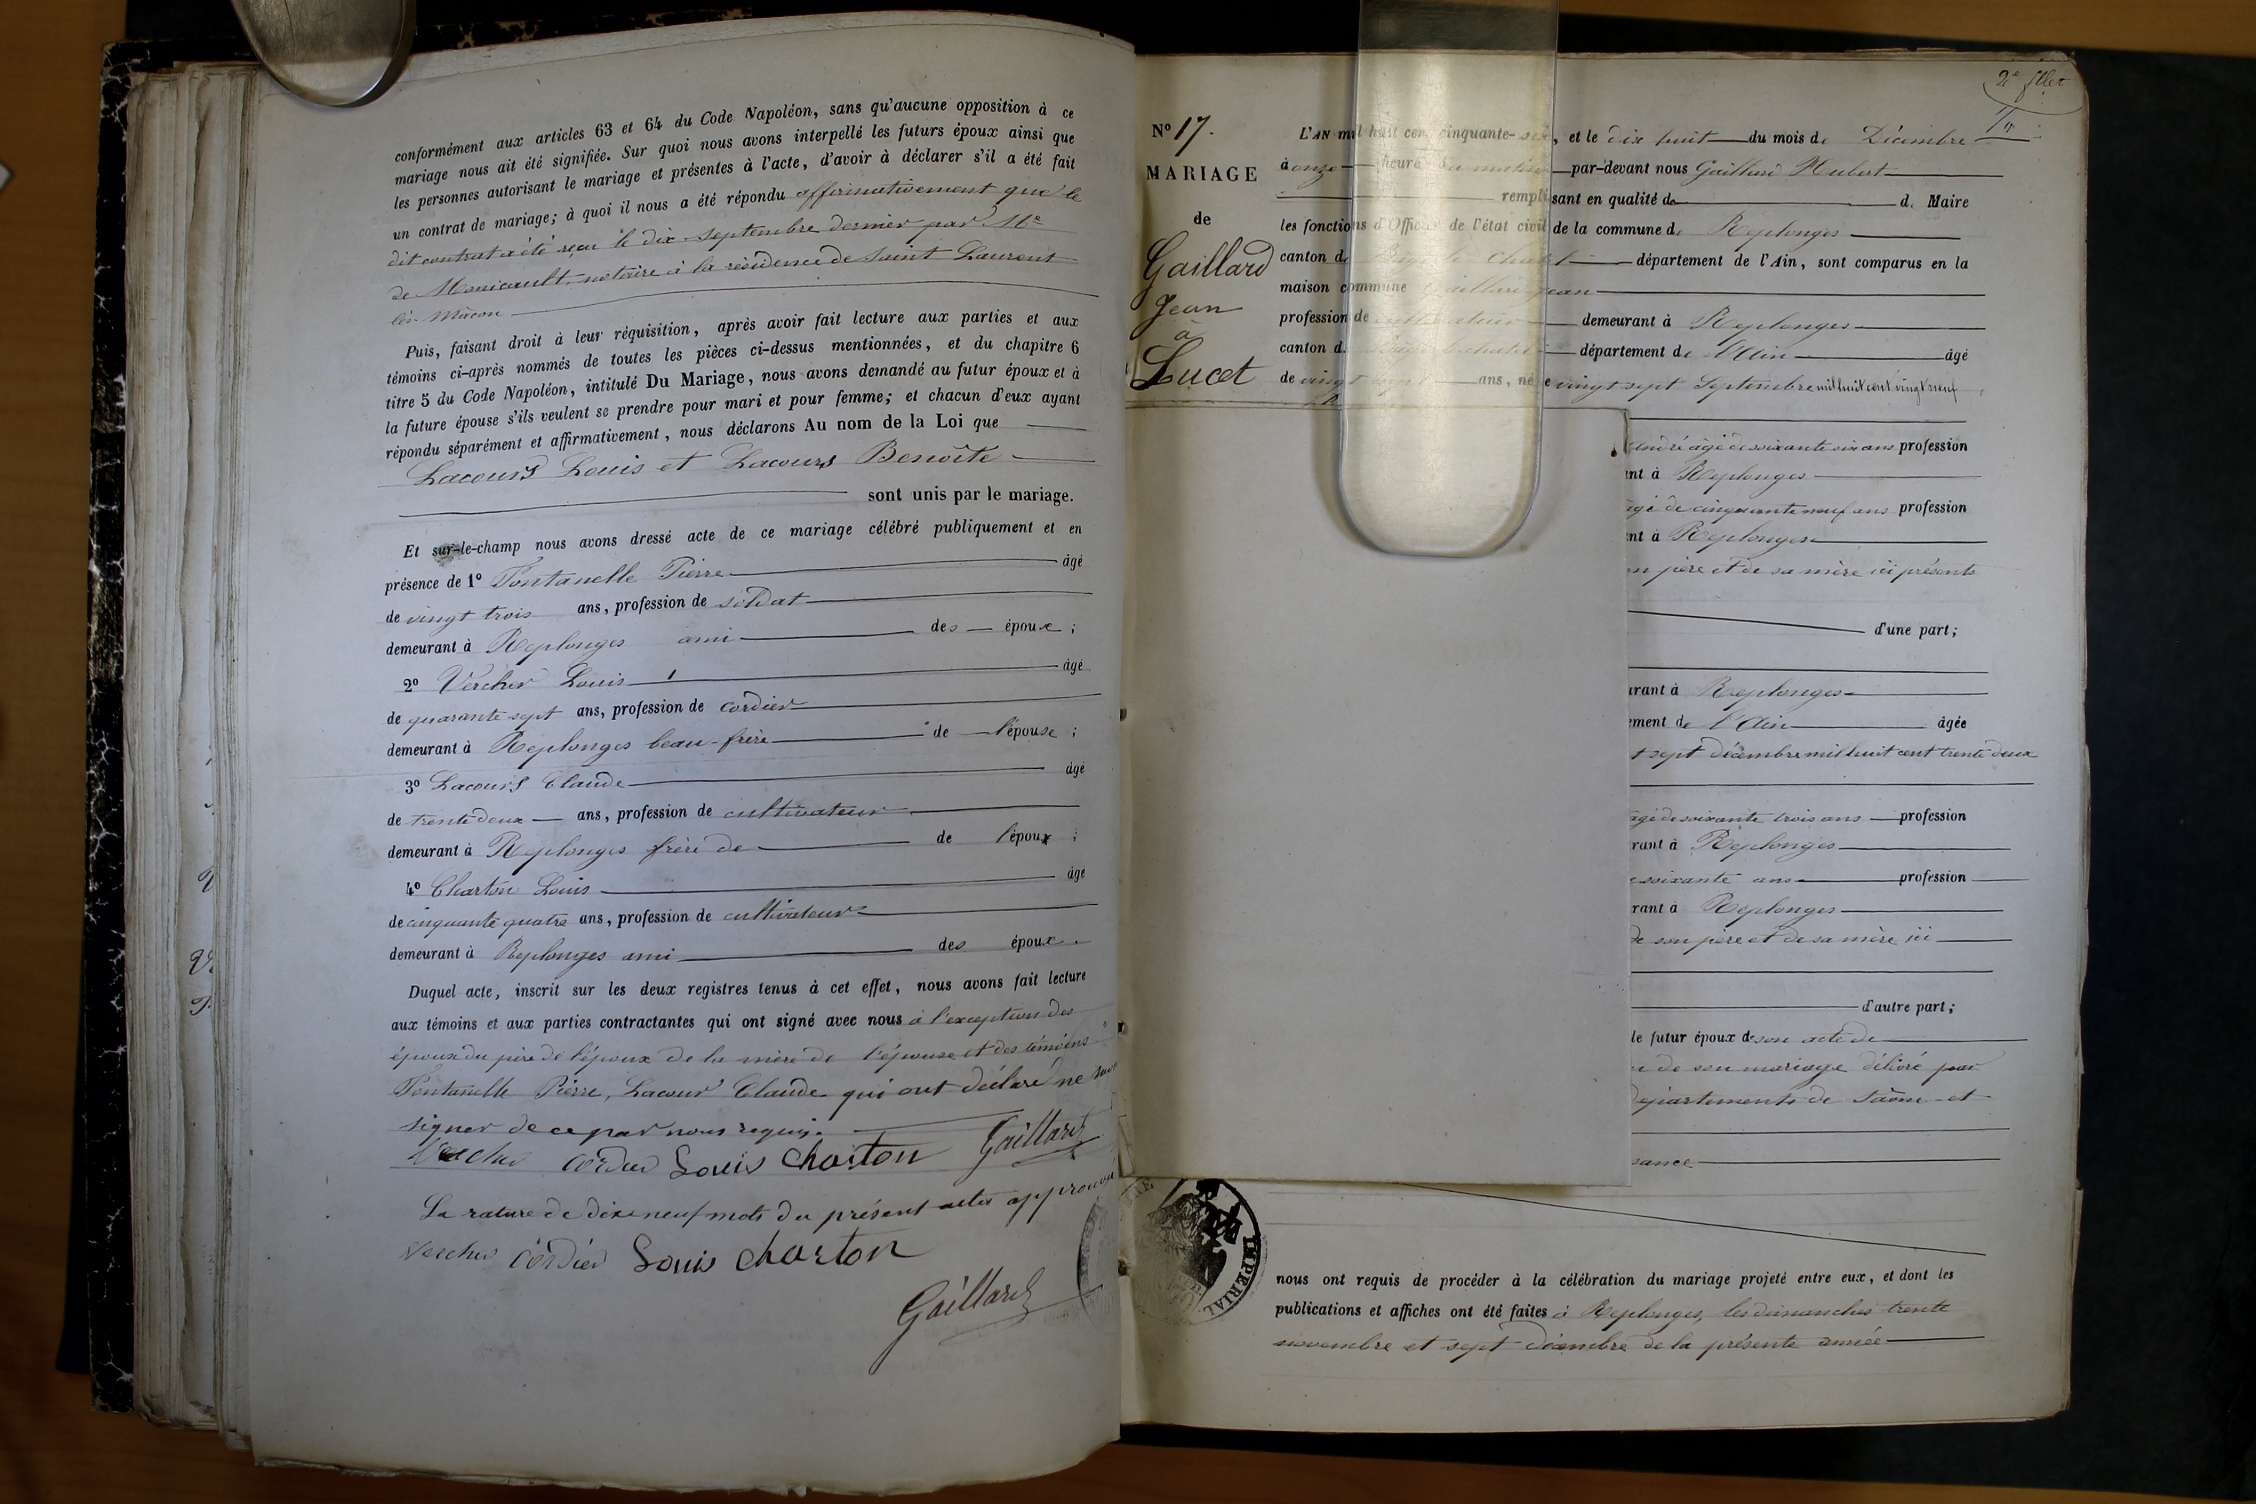 conformément aux articles 63 et 64 du Code Napoléon, sans qu'aucune opposition à ce
mariage nous ait été signifiée. Sur quoi nous avons interpellé les futurs époux ainsi que
les personnes autorisant le mariage et présentes à l'acte, d'avoir à déclarer s'il a été fait
un contrat de mariage; à quoi il nous a été répondu affirmativement que le
dit contrat a été reçu le dix septembre dernier par Me
de notaire à la résidence de Saint Laurent
lès Mâcon
Puis, faisant droit à leur réquisition, après avoir fait lecture aux parties et aux
témoins ci-après nommés de toutes les pièces ci-dessus mentionnées, et du chapitre 6
titre 5 du Code Napoléon, intitulé Du Mariage, nous avons demandé au futur époux et à
la future épouse s'ils veulent se prendre pour mari et pour femme; et chacun d'eux ayant
répondu séparément et affirmativement, nous déclarons Au nom de la Loi que
Lacours Louis et Lacours Benoîte
sont unis par le mariage.
Et sur-le-champ nous avons dressé acte de ce mariage célébré publiquement et en
présence de 1º Fontanelle Pierre âgé
de vingt trois ans, profession de soldat
demeurant à Replonges ami des époux;
2º Vercher Louis âgé
de quarante sept ans, profession de cordier
demeurant à Replonges beau-frère de l'épouse;
3º Lacours Claude âgé
de trente deux ans, profession de cultivateur
demeurant à Replonges frère de de l'époux;
4º Charton Louis âgé
de cinquante quatre ans, profession de cultivateur
demeurant à Replonges ami des époux.
Duquel acte, inscrit sur les deux registres tenus à cet effet, nous avons fait lecture
aux témoins et aux parties contractantes qui ont signé avec nous à l'exception des
époux du père de l'époux de la mère de l'épouse et des témoins
Fontanelle Pierre, Lacour Claude qui ont déclaré ne
signer de ce par nous requis.
Vercher cordier Louis Charton Gaillard
La rature de dix neuf mots du présent acte
Vercher cordier Louis Charton
Gaillard
2e fllet
Nº 17.
MARIAGE
de
Gaillard
Jean
à
Lucet
L'AN mil huit cent cinquante-six, et le dix huit du mois de Décembre
à onze heure du matin par-devant nous Gaillard Hubert
remplissant en qualité de d. Maire
les fonctions d'Officier de l'état civil de la commune de Replonges
canton de Bagé le Chatel département de l'Ain, sont comparus en la
maison commune Gaillard Jean
profession de cultivateur demeurant à Replonges
canton d. Bagé le chatel département de l'Ain âgé
de vingt sept ans, né le vingt sept Septembre mil huit cent vingt neuf
André âgé de soixante six ans profession
ant à Replonges
âgé de cinquante neuf ans profession
ant à Replonges
on père et de sa mère ici présents
d'une part;
urant à Replonges
ement de l'Ain âgée
t sept décembre mil huit cent trente deux
âgé de soixante trois ans profession
rant à Replonges
e soixante ans profession
rant à Replonges
de son père et de sa mère ici
d'autre part;
le futur époux de son acte de
de son mariage délivré par
départements de Saône et
sance
IMPERIAL
nous ont requis de procéder à la célébration du mariage projeté entre eux, et dont les
publications et affiches ont été faites à Replonges, les dimanches trente
novembre et sept décembre de la présente année